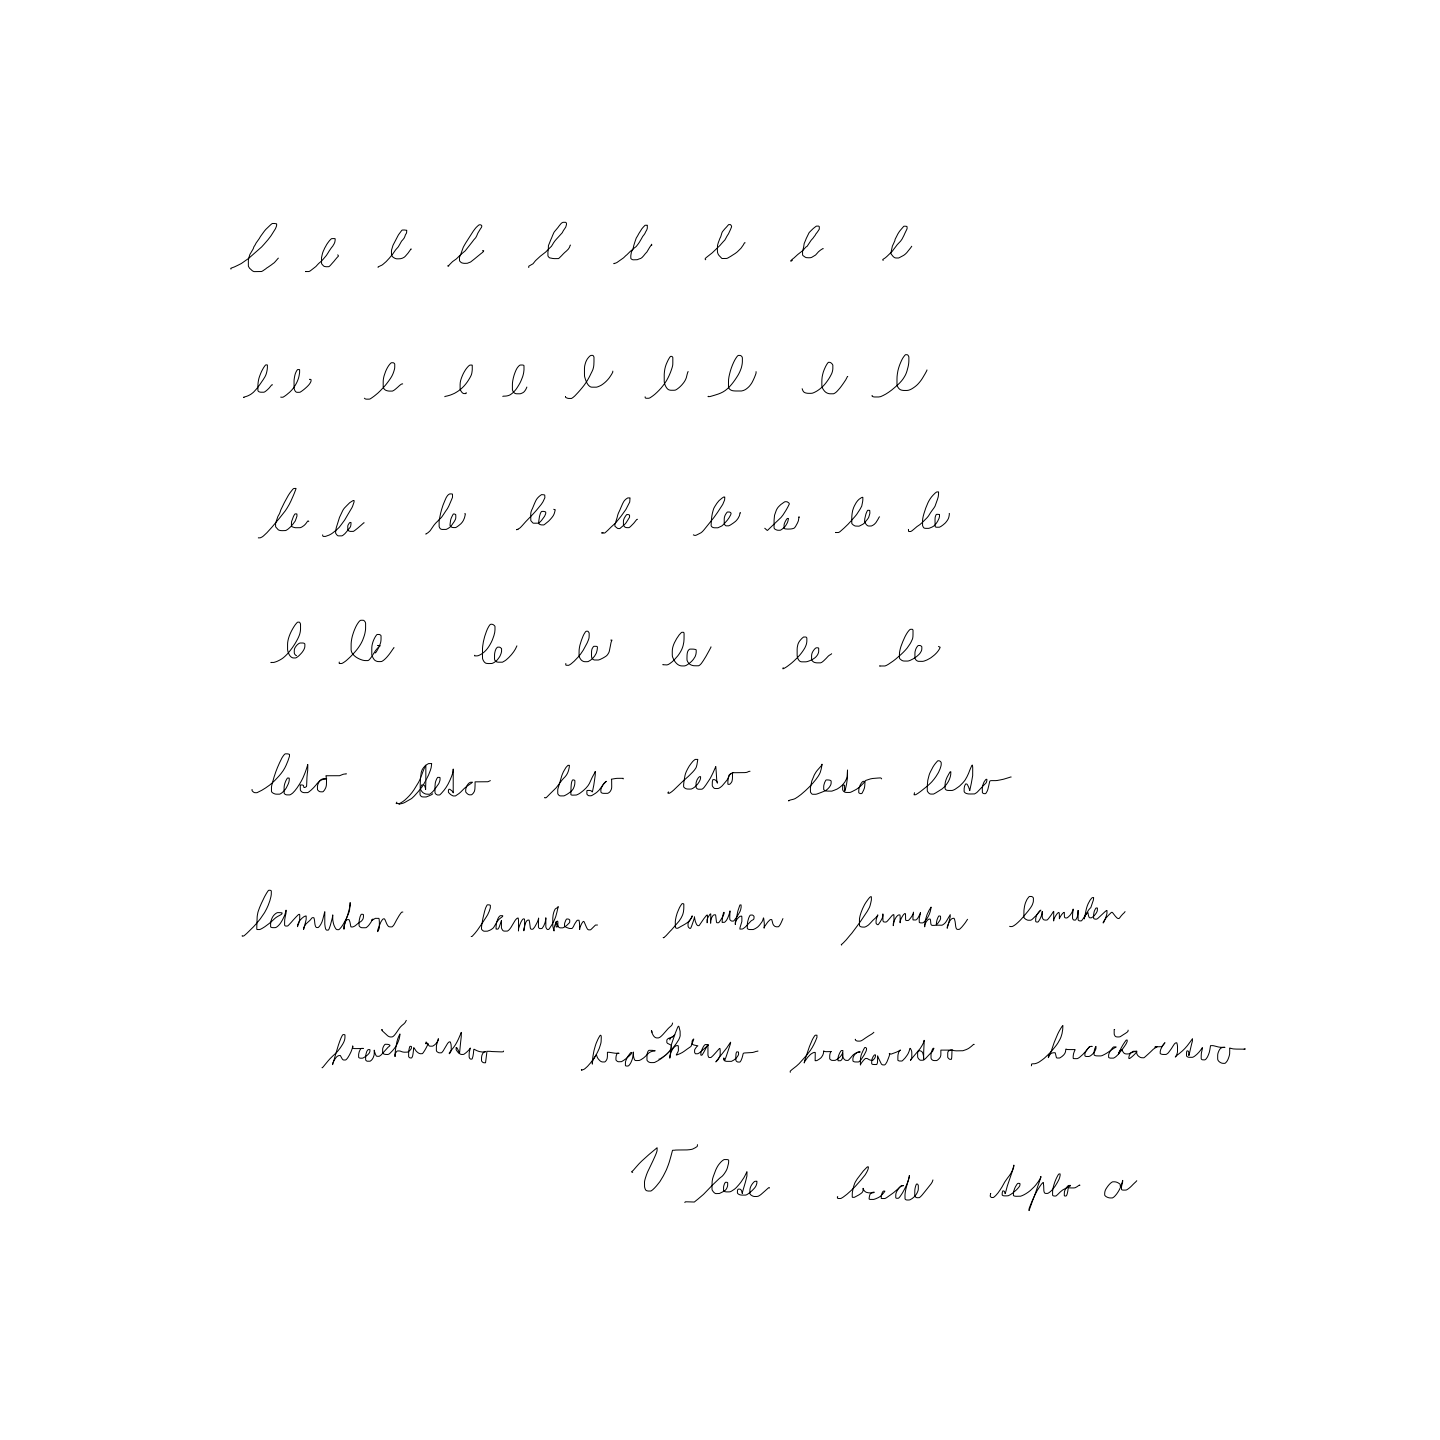 l l l l l l l l l
l l l l l l l l l l
le le le le le le le le le
le le le le le le le
leto leto leto leto leto leto
lamuken lamuken lamuken lamuken lamuken
hračkarstvo hračkrasto hračkarstvo hračkarstvo
V lete bude teplo a